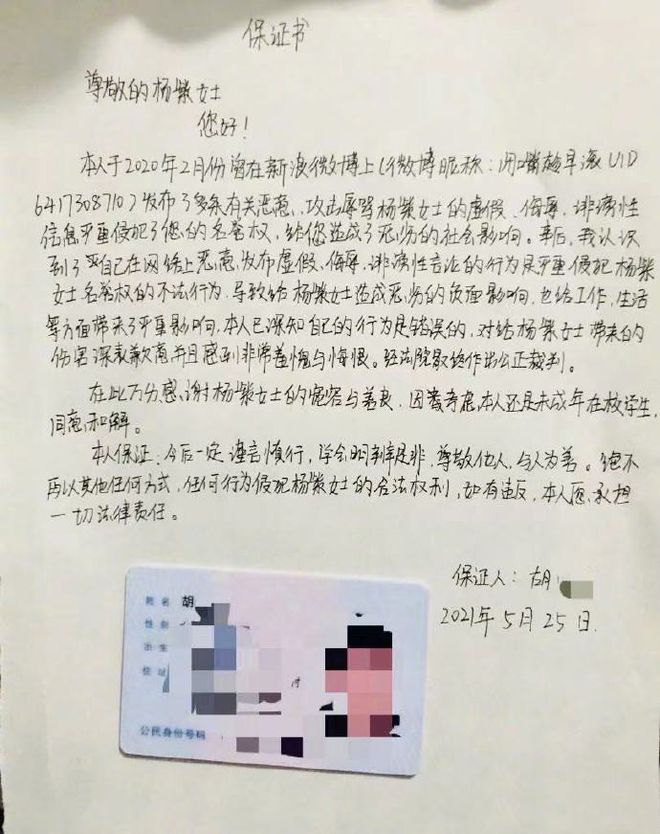 保证书
尊敬的杨紫女士
您好!
本人于2020年2月份曾在新浪微博上(微博昵称:闭嘴趁早滚 UID
6417308710)发布了多条有关恶意、攻击辱骂杨紫女士的虚假、侮辱、诽谤性
信息严重侵犯了您的名誉权,给您造成了恶劣的社会影响。事后,我认识
到了自己在网络上恶意发布虚假、侮辱、诽谤性言论的行为是严重侵犯杨紫
女士名誉权的不法行为,导致给杨紫女士造成恶劣的负面影响,也给工作,生活
等方面带来了严重影响,本人已深知自己的行为是错误的,对给杨紫女士带来的
伤害深表歉意并且感到非常羞愧与悔恨。经法院最终作出公正裁判。
在此万分感谢杨紫女士的宽容与善良,因考虑本人还是未成年在校学生,
同意和解。
本人保证:今后一定谨言慎行,学会明辨是非,尊敬他人,与人为善。绝不
再以其他任何方式,任何行为侵犯杨紫女士的合法权利,如有违反,本人愿承担
一切法律责任。
保证人:胡
2021年5月25日.
姓名 胡
性别
出生
住址
公民身份号码